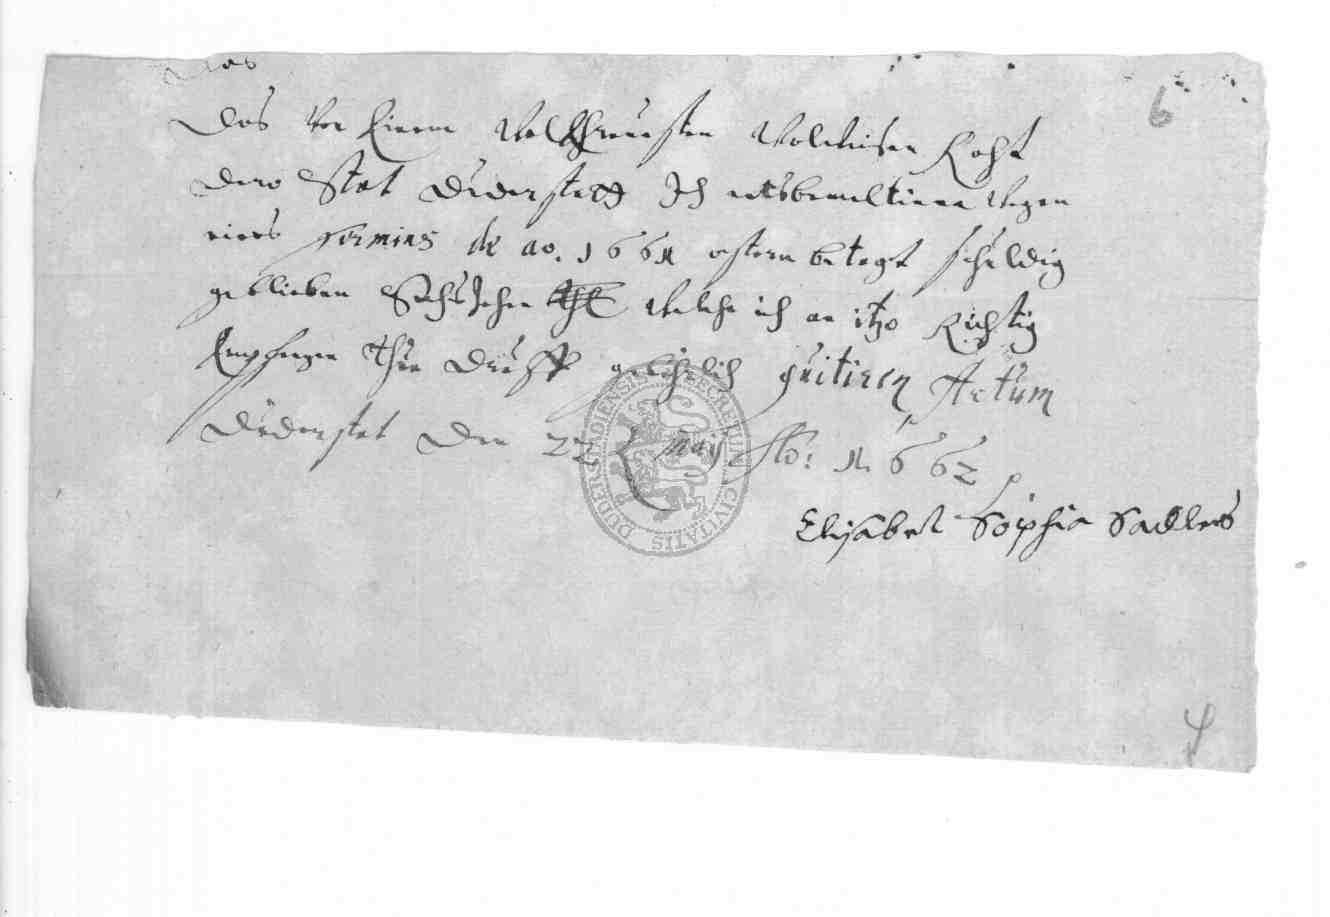 Das
Das Von Einem WolEhrnvesten Wolweisen Raht
dero Stat Duderstadt Ich wegen
eines termins de ao. 1661 ostern betagt schuldig
geblieben Sechszehen thl Welche ich an itzo Richtig
Empfangen Thue quitiren Actum
Duderstat den 22 Maij Ao: 1662
Elisabet Sophia Sadlers
6
4
SECRETUM CIVITATIS DUDERSTADIENSIS